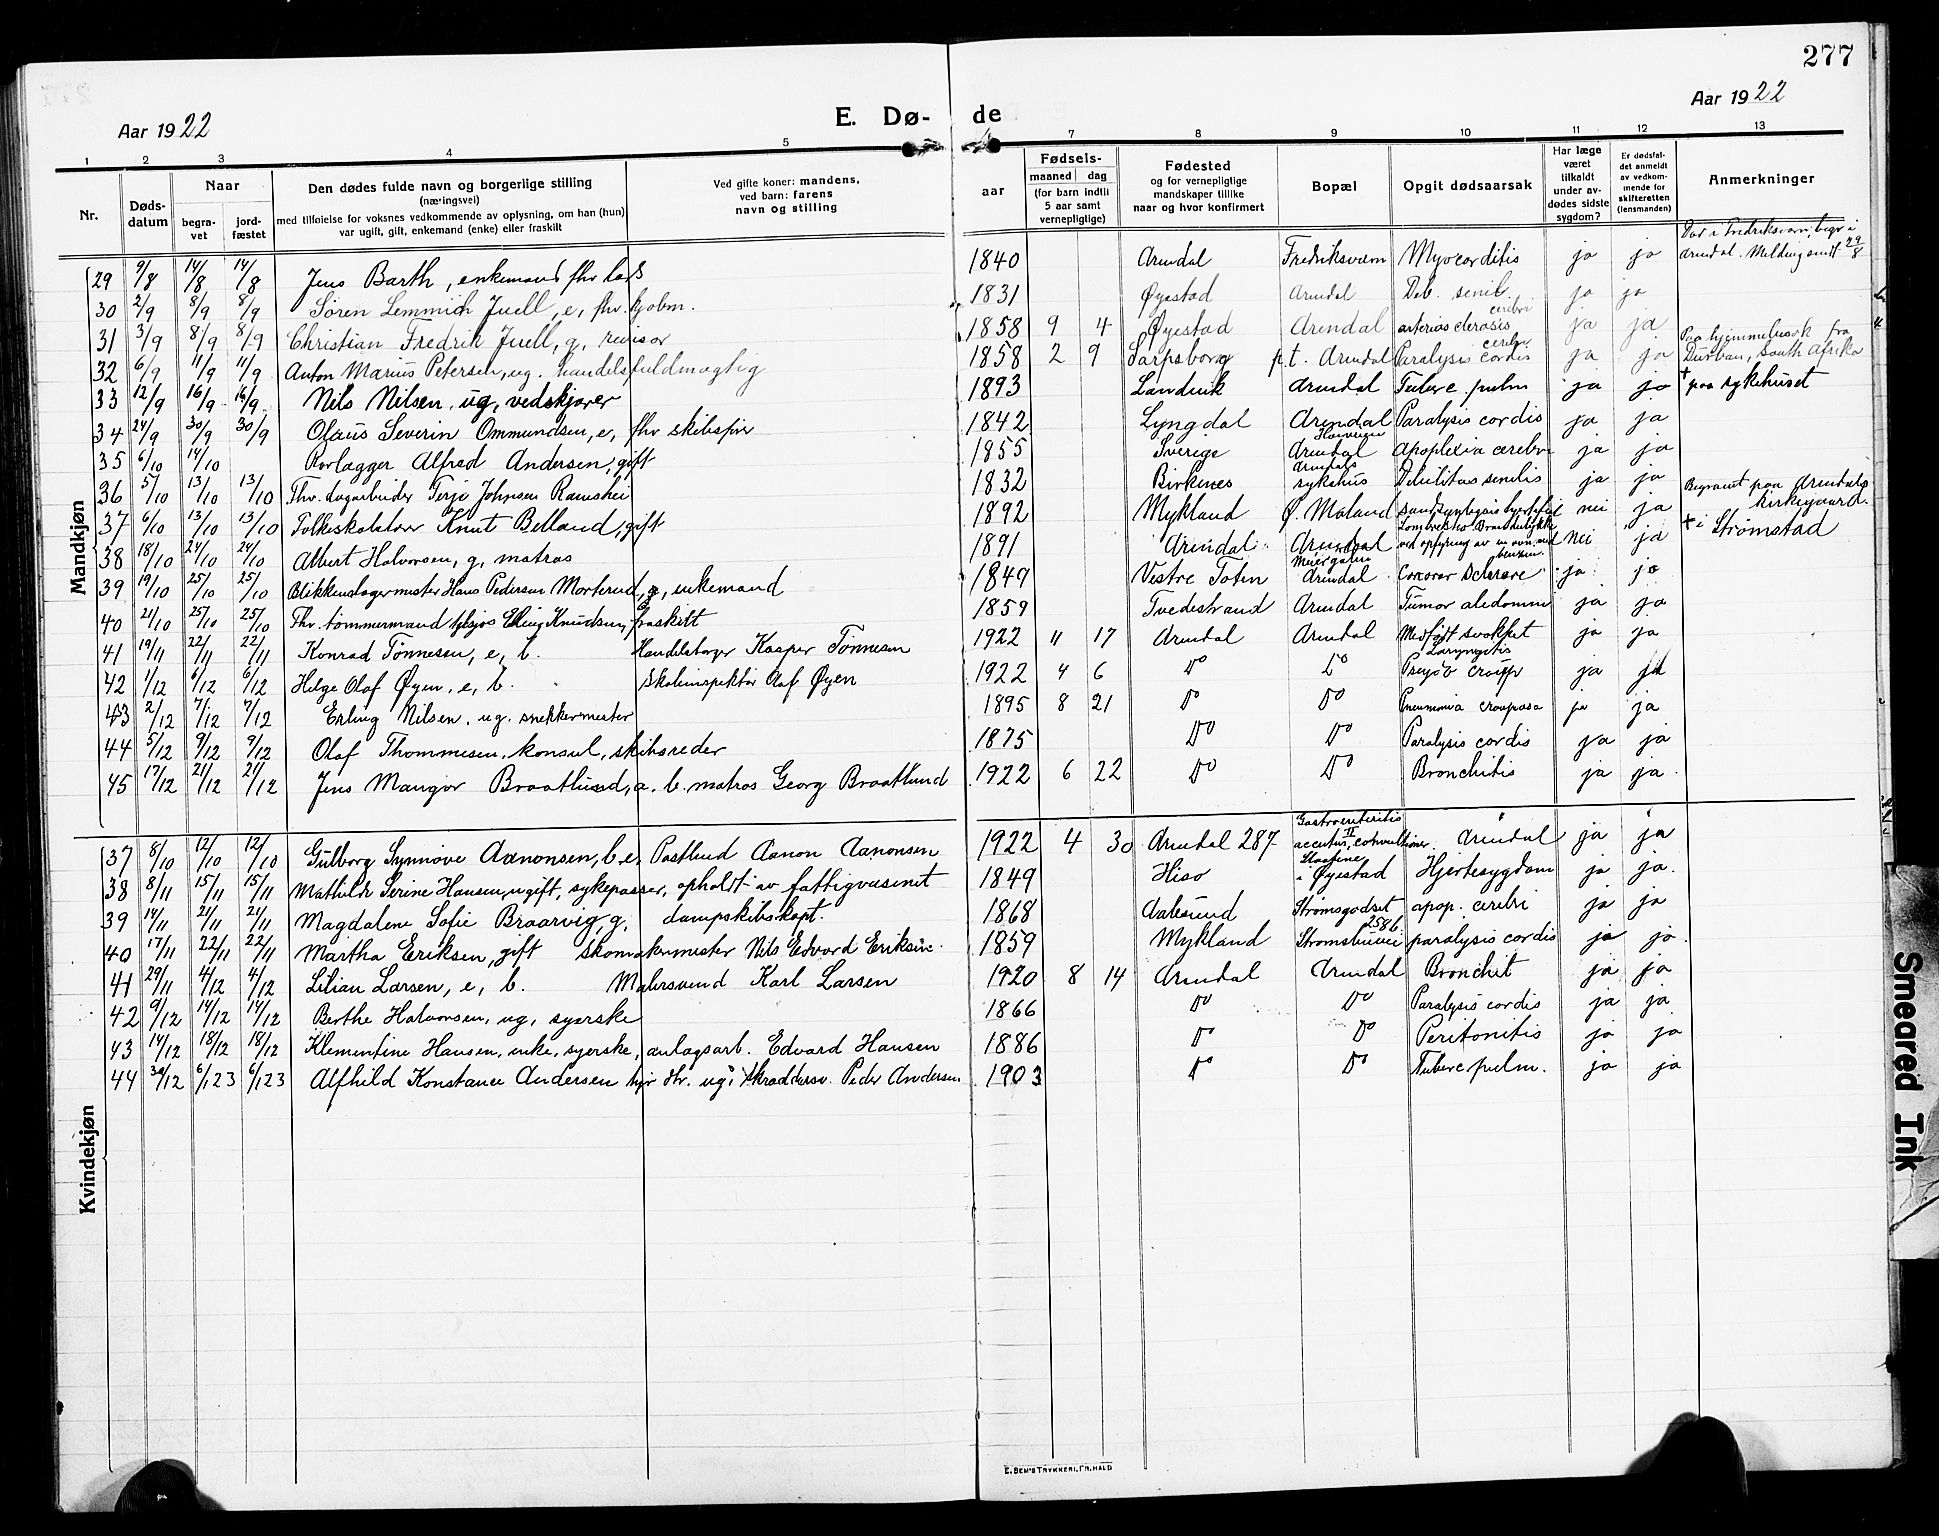 277
Aar 1922
E. Dø-
de
Aar 1922
1 2 3 4 5 7 8 9 10 11 12 13
Nr.
Døds-
datum
Naar
begra-
vet
jord-
fæstet
Den dødes fulde navn og borgerlige stilling
(næringsvei)
med tilføielse for voksnes vedkommende av oplysning, om han (hun)
var ugift, gift, enkemand (enke) eller fraskilt
Ved gifte koner: mandens,
ved barn: farens
navn og stilling
aar
Fødsels-
maaned dag
(for barn indtil
5 aar samt
vernepligtige)
Fødested
og for vernepligtige
mandskaper tillike
naar og hvor konfirmert
Bopæl
Opgit dødsaarsak
Har læge
været
tilkaldt
under av-
dødes sidste
sygdom?
Er dødsfal-
det anmeldt
av vedkom-
mende for
skifteretten
(lensmanden)
Anmerkninger
Mandkjøn
29 9/8 14/8 14/8 Jens Barth, enkemand fhv. 1840 Arendal Fredriksværn Myocorditis ja ja Død i Fredriksværn, begr. i Arendal. Melding sendt 29/8
30 2/9 8/9 8/9 Søren Lemmich Juell, e, fhv. kjøbm. 1831 Øyestad Arendal Deb. senil. ja ja
31 3/9 8/9 8/9 Christian Fredrik Juell, g, revisor 1858 9 4 Øyestad Arendal arteriosclerosis cerebri ja ja
32 6/9 11/9 11/9 Anton Marius Petersen, ug. handelsfuldmægtig 1858 2 9 Sarpsborg p.t. Arendal Paralysis cordis ja ja Paa hjemmebesøk fra Durban, South Afrika
33 12/9 16/9 16/9 Nils Nilsen, ug, vedskjærer 1893 Landvik Arendal Tuberc. pulm ja ja + paa sykehuset
34 24/9 30/9 30/9 Olaus Severin Ommundsen, e, fhv skibsfører 1842 Lyngdal Arendal Paralysis cordis ja ja
35 6/10 14/10 Rørlægger Alfred Andersen, gift 1855 Sverige Arendal apoplexia cerebri ja ja
36 5/10 13/10 13/10 Fhv. dagarbeider Terje Johnsen Rameshei 1832 Birkenes Arendals sykehus Debilitas senilis ja ja
37 6/10 13/10 13/10 Folkeskolelærer Knut Belland, gift 1892 Mykland Ø. Moland nei ja Begravet paa Arendals kirkegaard.
38 18/10 24/10 24/10 Albert Halvorsen, g, matros 1891 Arendal Arendal ved opfyring av en ovn med benzin. nei ja + i Strømstad
39 19/10 25/10 25/10 Blikkenslagermester Hans Pedersen Morterud, enkemand 1849 Vestre Toten Arendal ja ja
40 21/10 25/10 25/10 Fhv. tømmermand Elling Knudsen, fraskilt 1859 Tvedestrand Arendal Tumor abdomin ja ja
41 19/11 22/11 22/11 Konrad Tønnesen, e, b. Handelsborger Kasper Tønnesen 1922 11 17 Arendal Arendal Medfødt svakhet ja ja
42 1/12 6/12 6/12 Helge Olaf Øyen, e, b. Skoleinspektør Olaf Øyen 1922 4 6 Do Do Laryngitis croup ja ja
43 2/12 7/12 7/12 Erling Nilsen, ug. snekkermester 1895 8 21 Do Do Pneumonia crouposa ja ja
44 5/12 9/12 9/12 Olaf Thommesen, konsul, skibsreder 1875 Do Do Paralysis cordis ja ja
45 17/12 21/12 21/12 Jens Mangor Braatlund, a. b. matros Georg Braatlund 1922 6 22 Do Do Bronchitis ja ja
Kvindekjøn
37 8/10 12/10 12/10 Gulborg Synnøve Aanonsen, b. e, Postbud Aanon Aanonsen 1922 4 30 Arendal 287 Gastroenteritis accutus, convultioner. Arendal ja ja
38 8/11 15/11 15/11 Mathilde Serine Hansen, ugift, sykepasser, opholdt av fattigvæsenet 1849 Hisø i Øyestad Hjertesygdom ja ja
39 14/11 21/11 21/11 Magdalene Sofie Braarvig, g, dampskibskapt. 1868 Aalesund Strømsgodset apop. cerebri ja ja
40 17/11 22/11 22/11 Martha Eriksen, gift skomakermester Nils Edvard Eriksen 1859 Mykland Strømsbuvei 2586 paralysis cordis ja ja
41 29/11 4/12 4/12 Lilian Larsen, e, b. Malersvend Karl Larsen 1920 8 14 Arendal Arendal Bronchit ja ja
42 9/12 14/12 14/12 Berthe Halvorsen, ug, syerske 1866 Do Do Paralysis cordis ja ja
43 14/12 18/12 18/12 Klementine Hansen, enke, syerske, anlagsarb. Edvard Hansen 1886 Do Do Peritonitis ja ja
44 30/12 6/1 23 6/1 23 Alfhild Konstance Andersen ug. skræddersv. Peder Andersen 1903 Do Do Tuberc pulm. ja ja
E. SEM'S TRYKKERI, FR.HALD
Smeared Ink